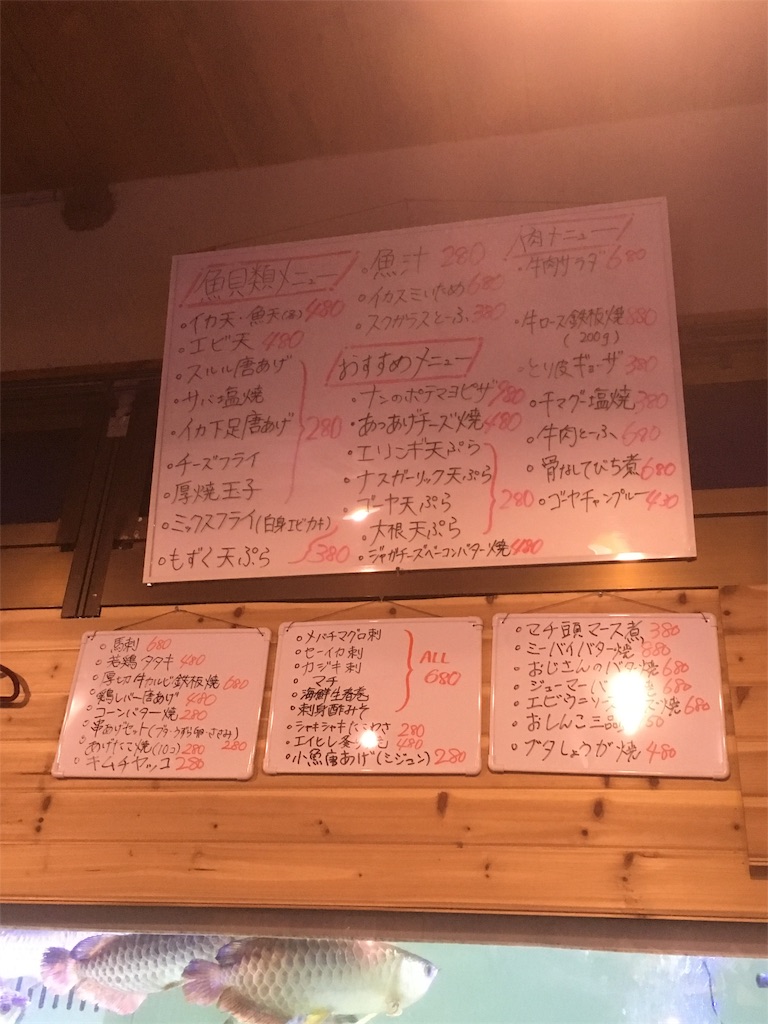 魚貝類メニュー
・イカ天・魚天 480
・エビ天 480
・スルル唐あげ
・サバ塩焼
・イカ下足唐あげ
・チーズフライ
・厚焼玉子
280
・ミックスフライ(白身エビカキ)
・もずく天ぷら
380
・魚汁 280
・イカスミいため 680
・スクガラスとーふ 380
おすすめメニュー
・ナンのポテマヨピザ 780
・あつあげチーズ焼 480
・エリンギ天ぷら
・ナスガーリック天ぷら
・ゴーヤ天ぷら
・大根天ぷら
280
・ジャガチーズベーコンバター焼 480
肉メニュー
・牛肉サラダ 680
・牛ロース鉄板焼 880
(200g)
・とり皮ギョーザ 380
・牛マグー塩焼 380
・牛肉とーふ 680
・骨なしてびち煮 680
・ゴーヤチャンプルー 430
・馬刺 680
・若鶏タタキ 480
・厚切牛カルビ鉄板焼 680
・鶏レバー唐あげ 480
・コーンバター焼 280
・串あげセット
280
・あげたこ焼(10コ) 280
・キムチヤッコ 280
・メバチマグロ刺
・セーイカ刺
・カジキ刺
・マチ
・海鮮生春巻
・刺身酢みそ
ALL
680
・シャキシャキ 280
・エイヒレ 480
・小魚唐あげ(ミジュン) 280
・マチ頭マース煮 380
・ミーバイバター焼 880
・おじさんのバター焼 680
・ジューマーバ 680
・エビウニソ ズ焼 680
・おしんこ三品
・ブタしょうが焼 480